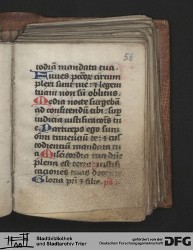 58
todiā mandata tua
Funes pctōr̄ circum
plexi sunt me: ⁊ legem
tuam non sū oblitus
Media nocte surgebā
ad confitendū tibi: su
iudicia iustificatōis
Particeps ego sum
oīm timentiū te: ⁊ cus
todientiū mandata tu
Misc̄dia
plena est terra: iustifi
cationes tuas doce me
Gloria pri ⁊ filio. ps
Stadtbibliothek
und Stadtarchiv Trier
gefördert von der
DFG
Deutschen Forschungsgemeinschaft